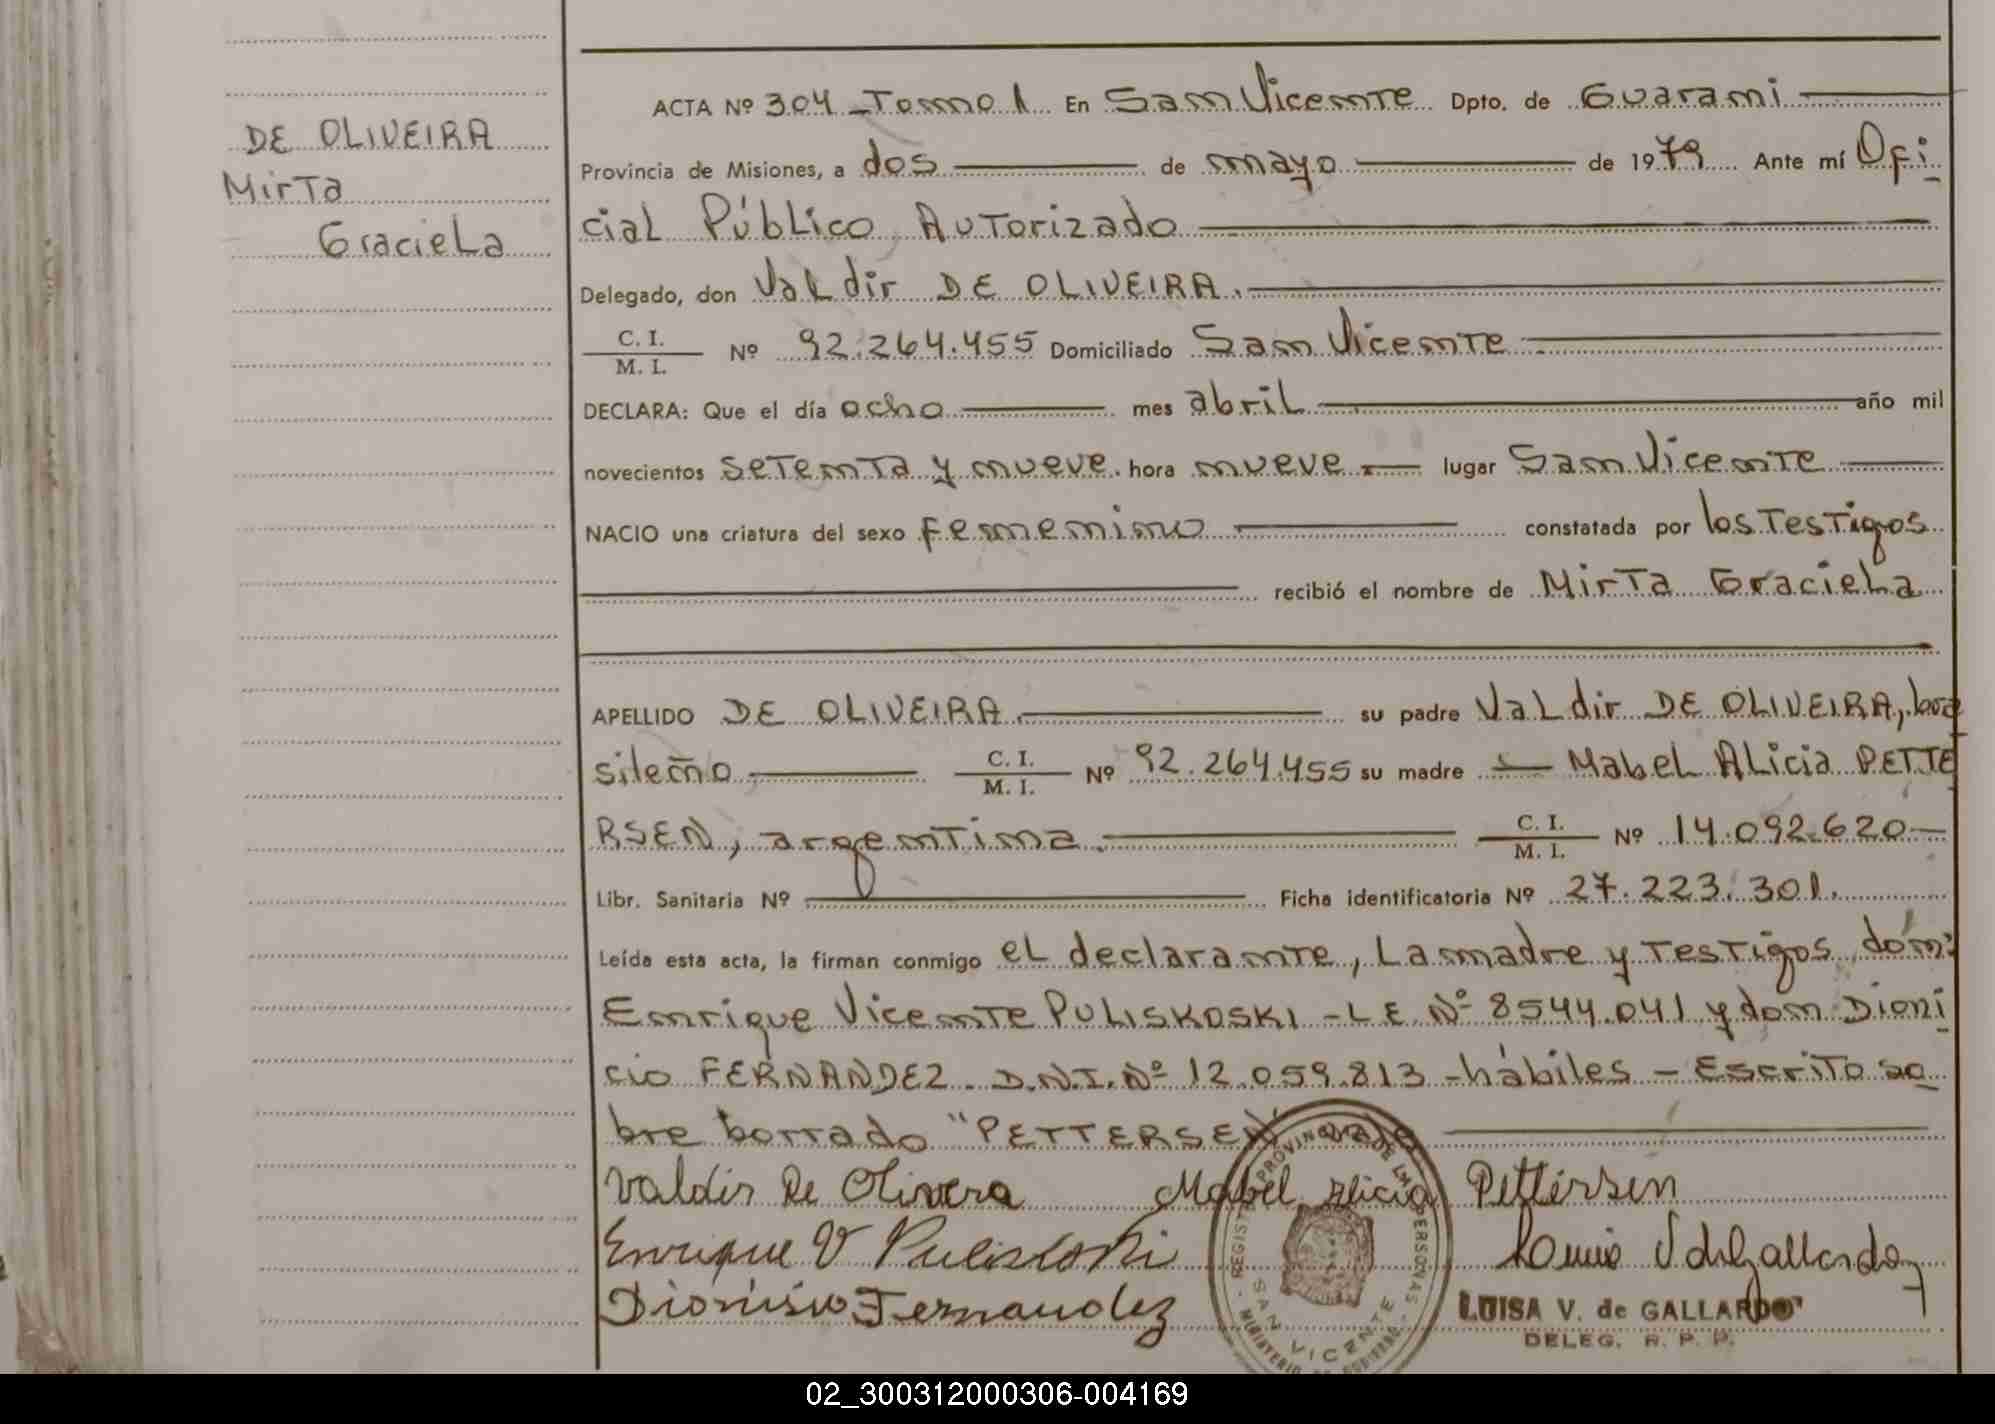 DE OLIVEIRA
Mirta
Graciela
ACTA Nº 304 - Tomo 1 En San Vicente Dpto. de Guarani
Provincia de Misiones, a dos de mayo de 1979 Ante mí Ofi
cial Público Autorizado
Delegado, don Valdir DE OLIVEIRA.
C. I.
M. I. Nº 92.264.455 Domiciliado San Vicente
DECLARA: Que el día ocho mes abril año mil
novecientos setenta y nueve. hora nueve. lugar San Vicente
NACIO una criatura del sexo femenino constatada por los Testigos
recibió el nombre de Mirta Graciela
APELLIDO DE OLIVEIRA. su padre Valdir DE OLIVEIRA, bra
sileño, C. I. M. I. Nº 92.264.455 su madre Mabel Alicia PETTE
RSEN, argentina. C. I. M. I. Nº 14.092.620
Libr. Sanitaria Nº Ficha identificatoria Nº 27.223.301.
Leída esta acta, la firman conmigo el declarante, la madre y Testigos, don:
Enrique Vicente PULISKOSKI - LE Nº 8544.041 y don Dioni
cio FERNANDEZ. D.N.I. Nº 12.059.813 - hábiles - Escrito so
bre borrado "PETTERSEN" vale
Valdir De Olivera Mabel Alicia Pettersen
Enrique V Puliskoski V de Gallardo
Dionisio Fernandez
LUISA V. de GALLARDO
DELEG. R. P. P.
REGISTRO PROVINCIAL DE LAS PERSONAS
SAN VICENTE
MINISTERIO DE GOBIERNO
02_300312000306-004169